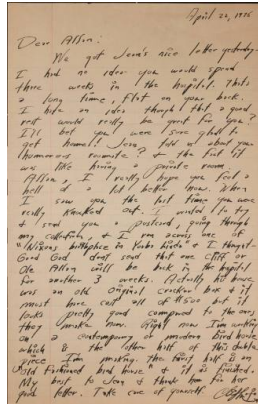 April 22, 1976
Dear Allan:
We got Jean's nice letter yesterday.
I had no idea you would spend
three weeks in the hospital. That's
a long time, flat on your back.
I had an idea though that a good
rest would really be great for you?
I'll bet you were sure glad to
get home! Jean told us about your
humorous roommate? In fact it
was like having a private room.
Allan, I really hope you feel a
hell of a lot better now. When
I saw you the last time you were
really knocked out. I wanted to try
& send you a postcard, going through
my collection, & I ran across one of
"Nixons birthplace in Yorba Linda" & I thought-
Good God dont send that one Cliff or
Ole Allan will be back in the hospital
for another 3 weeks. Actually his house
was an old original cracker box it
must have cost all of $500 but it
looks pretty good compared to the ones
they make now. Right now I'm working
on a contemporary or modern bird house
which is the other half of this
piece I'm making. The first half is an
"Old Fashioned bird house" & it is finished.
My best to Jean & thank him for her
good letter. Take care of yourself.
Cliff